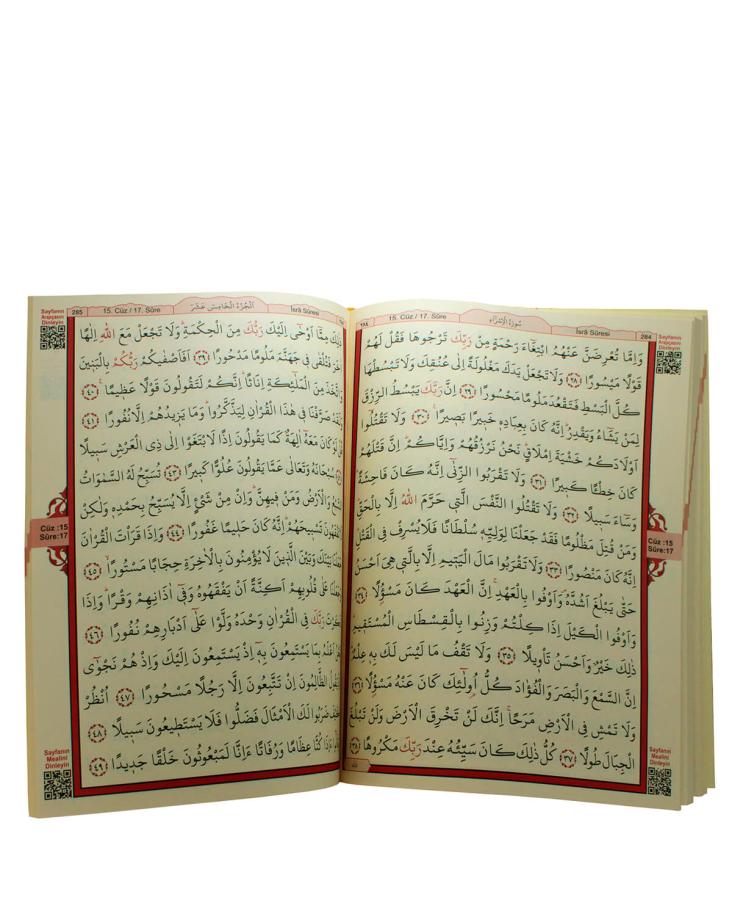 284
İsrâ Sûresi
سُورَةُ الْاِسْرَاءِ
15. Cüz / 17. Sûre
٢٨٤
Sayfanın
Arapçasını
Dinleyin
وَاِمَّا تُعْرِضَنَّ عَنْهُمُ ابْتِغَٓاءَ رَحْمَةٍ مِنْ رَبِّكَ تَرْجُوهَا فَقُلْ لَهُمْ
قَوْلًا مَيْسُورًا ﴿٢٨﴾ وَلَا تَجْعَلْ يَدَكَ مَغْلُولَةً اِلٰى عُنُقِكَ وَلَا تَبْسُطْهَا
كُلَّ الْبَسْطِ فَتَقْعُدَ مَلُومًا مَحْسُورًا ﴿٢٩﴾ اِنَّ رَبَّكَ يَبْسُطُ الرِّزْقَ
لِمَنْ يَشَٓاءُ وَيَقْدِرُ اِنَّهُ كَانَ بِعِبَادِهِ خَبِيرًا بَصِيرًا ﴿٣٠﴾ وَلَا تَقْتُلُٓوا
اَوْلَادَكُمْ خَشْيَةَ اِمْلَاقٍ نَحْنُ نَرْزُقُهُمْ وَاِيَّاكُمْ اِنَّ قَتْلَهُمْ
كَانَ خِطْـًٔا كَبِيرًا ﴿٣١﴾ وَلَا تَقْرَبُوا الزِّنٰٓى اِنَّهُ كَانَ فَاحِشَةً
وَسَٓاءَ سَبِيلًا ﴿٣٢﴾ وَلَا تَقْتُلُوا النَّفْسَ الَّتِي حَرَّمَ اللّٰهُ اِلَّا بِالْحَقِّ
وَمَنْ قُتِلَ مَظْلُومًا فَقَدْ جَعَلْنَا لِوَلِيِّهِ سُلْطَانًا فَلَا يُسْرِفْ فِي الْقَتْلِ
اِنَّهُ كَانَ مَنْصُورًا ﴿٣٣﴾ وَلَا تَقْرَبُوا مَالَ الْيَتِيمِ اِلَّا بِالَّتِي هِيَ اَحْسَنُ
حَتّٰى يَبْلُغَ اَشُدَّهُ وَاَوْفُوا بِالْعَهْدِ اِنَّ الْعَهْدَ كَانَ مَسْؤُلًا ﴿٣٤﴾
وَاَوْفُوا الْكَيْلَ اِذَا كِلْتُمْ وَزِنُوا بِالْقِسْطَاسِ الْمُسْتَقِيمِ
ذٰلِكَ خَيْرٌ وَاَحْسَنُ تَأْوِيلًا ﴿٣٥﴾ وَلَا تَقْفُ مَا لَيْسَ لَكَ بِهِ عِلْمٌ
اِنَّ السَّمْعَ وَالْبَصَرَ وَالْفُؤٰادَ كُلُّ اُولٰٓئِكَ كَانَ عَنْهُ مَسْؤُلًا ﴿٣٦﴾
وَلَا تَمْشِ فِي الْاَرْضِ مَرَحًا اِنَّكَ لَنْ تَخْرِقَ الْاَرْضَ وَلَنْ تَبْلُغَ
الْجِبَالَ طُولًا ﴿٣٧﴾ كُلُّ ذٰلِكَ كَانَ سَيِّئُهُ عِنْدَ رَبِّكَ مَكْرُوهًا ﴿٣٨﴾
Cüz :15
Sûre:17
Sayfanın
Mealini
Dinleyin
İsrâ Sûresi
اَلْجُزْءُ الْخَامِسُ عَشَرَ
15. Cüz / 17. Sûre
285
Sayfanın
Arapçasını
Dinleyin
ذٰلِكَ مِمَّٓا اَوْحٰٓى اِلَيْكَ رَبُّكَ مِنَ الْحِكْمَةِ وَلَا تَجْعَلْ مَعَ اللّٰهِ اِلٰهًا
اٰخَرَ فَتُلْقٰى فِي جَهَنَّمَ مَلُومًا مَدْحُورًا ﴿٣٩﴾ اَفَاَصْفٰيكُمْ رَبُّكُمْ بِالْبَنِينَ
وَاتَّخَذَ مِنَ الْمَلٰٓئِكَةِ اِنَاثًا اِنَّكُمْ لَتَقُولُونَ قَوْلًا عَظِيمًا ﴿٤٠﴾
وَلَقَدْ صَرَّفْنَا فِي هٰذَا الْقُرْاٰنِ لِيَذَّكَّرُوا وَمَا يَزِيدُهُمْ اِلَّا نُفُورًا ﴿٤١﴾
قُلْ لَوْ كَانَ مَعَهُٓ اٰلِهَةٌ كَمَا يَقُولُونَ اِذًا لَابْتَغَوْا اِلٰى ذِي الْعَرْشِ سَبِيلًا
سُبْحَانَهُ وَتَعَالٰى عَمَّا يَقُولُونَ عُلُوًّا كَبِيرًا ﴿٤٣﴾ تُسَبِّحُ لَهُ السَّمٰوَاتُ
السَّبْعُ وَالْاَرْضُ وَمَنْ فِيهِنَّ وَاِنْ مِنْ شَيْءٍ اِلَّا يُسَبِّحُ بِحَمْدِهِ وَلٰكِنْ
تَفْقَهُونَ تَسْبِيحَهُمْ اِنَّهُ كَانَ حَلِيمًا غَفُورًا ﴿٤٤﴾ وَاِذَا قَرَأْتَ الْقُرْاٰنَ
جَعَلْنَا بَيْنَكَ وَبَيْنَ الَّذِينَ لَا يُؤْمِنُونَ بِالْاٰخِرَةِ حِجَابًا مَسْتُورًا ﴿٤٥﴾
وَجَعَلْنَا عَلٰى قُلُوبِهِمْ اَكِنَّةً اَنْ يَفْقَهُوهُ وَفِٓي اٰذَانِهِمْ وَقْرًا وَاِذَا
ذَكَرْتَ رَبَّكَ فِي الْقُرْاٰنِ وَحْدَهُ وَلَّوْا عَلٰٓى اَدْبَارِهِمْ نُفُورًا ﴿٤٦﴾
اَعْلَمُ بِمَا يَسْتَمِعُونَ بِهِ اِذْ يَسْتَمِعُونَ اِلَيْكَ وَاِذْ هُمْ نَجْوٰٓى
يَقُولُ الظَّالِمُونَ اِنْ تَتَّبِعُونَ اِلَّا رَجُلًا مَسْحُورًا ﴿٤٧﴾ اُنْظُرْ
كَيْفَ ضَرَبُوا لَكَ الْاَمْثَالَ فَضَلُّوا فَلَا يَسْتَطِيعُونَ سَبِيلًا ﴿٤٨﴾
ءَاِذَا كُنَّا عِظَامًا وَرُفَاتًا ءَاِنَّا لَمَبْعُوثُونَ خَلْقًا جَدِيدًا ﴿٤٩﴾
Cüz :15
Sûre:17
Sayfanın
Mealini
Dinleyin